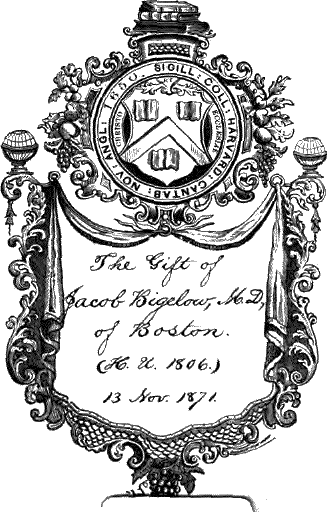 SIGILL: COLL: HARVARD: CANTAB: NOV. ANGL: 1650.
CHRISTO
ECCLESIÆ
The Gift of
Jacob Bigelow, M.D,
of Boston.
(H. U. 1806.)
13 Nov. 1871.